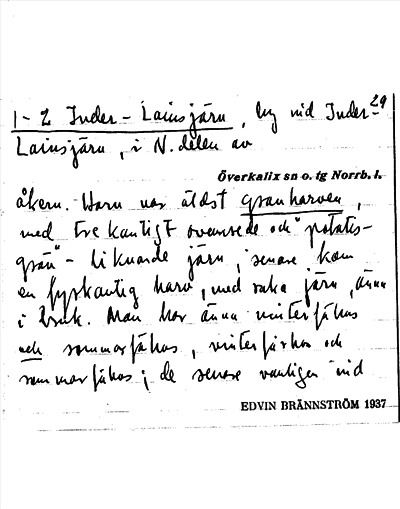 29
1-2 Inder-Lainsjärv, by vid Inder-
Lainsjärv, i N. delen av
Överkalix sn o. tg Norrb. l.
åkern. Harv var äldst granharven,
med trekantigt ovansede och "potatis-
grän"-liknande järn, senare kom
en fyrkantig harv, med raka järn, ännu
i bruk. Man har ännu vinterfähus
och sommarfähus, vinterfähus och
sommarfähus; de senare vanligen vid
EDVIN BRÄNNSTRÖM 1937